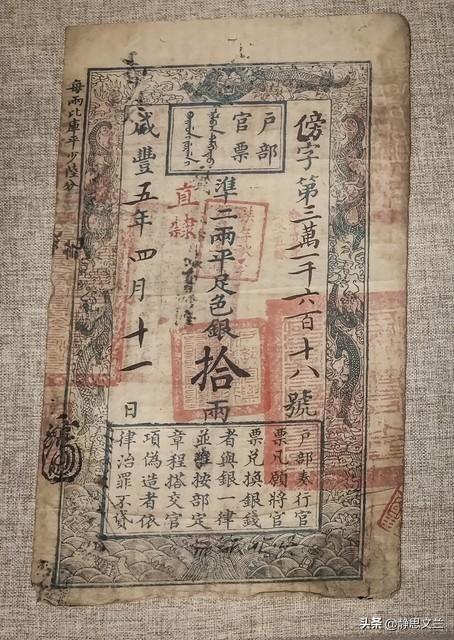 戶部
官票
傍字第三萬一千六百十八號
準二兩平足色銀拾兩
直隸
咸豐五年四月十一日
每兩比庫平少陸分
戶部奏行官
票凡願將官
票兌換銀錢
者與銀一律
並准按部定
章程搭交官
項偽造者依
律治罪不貸
头条 @静思文兰